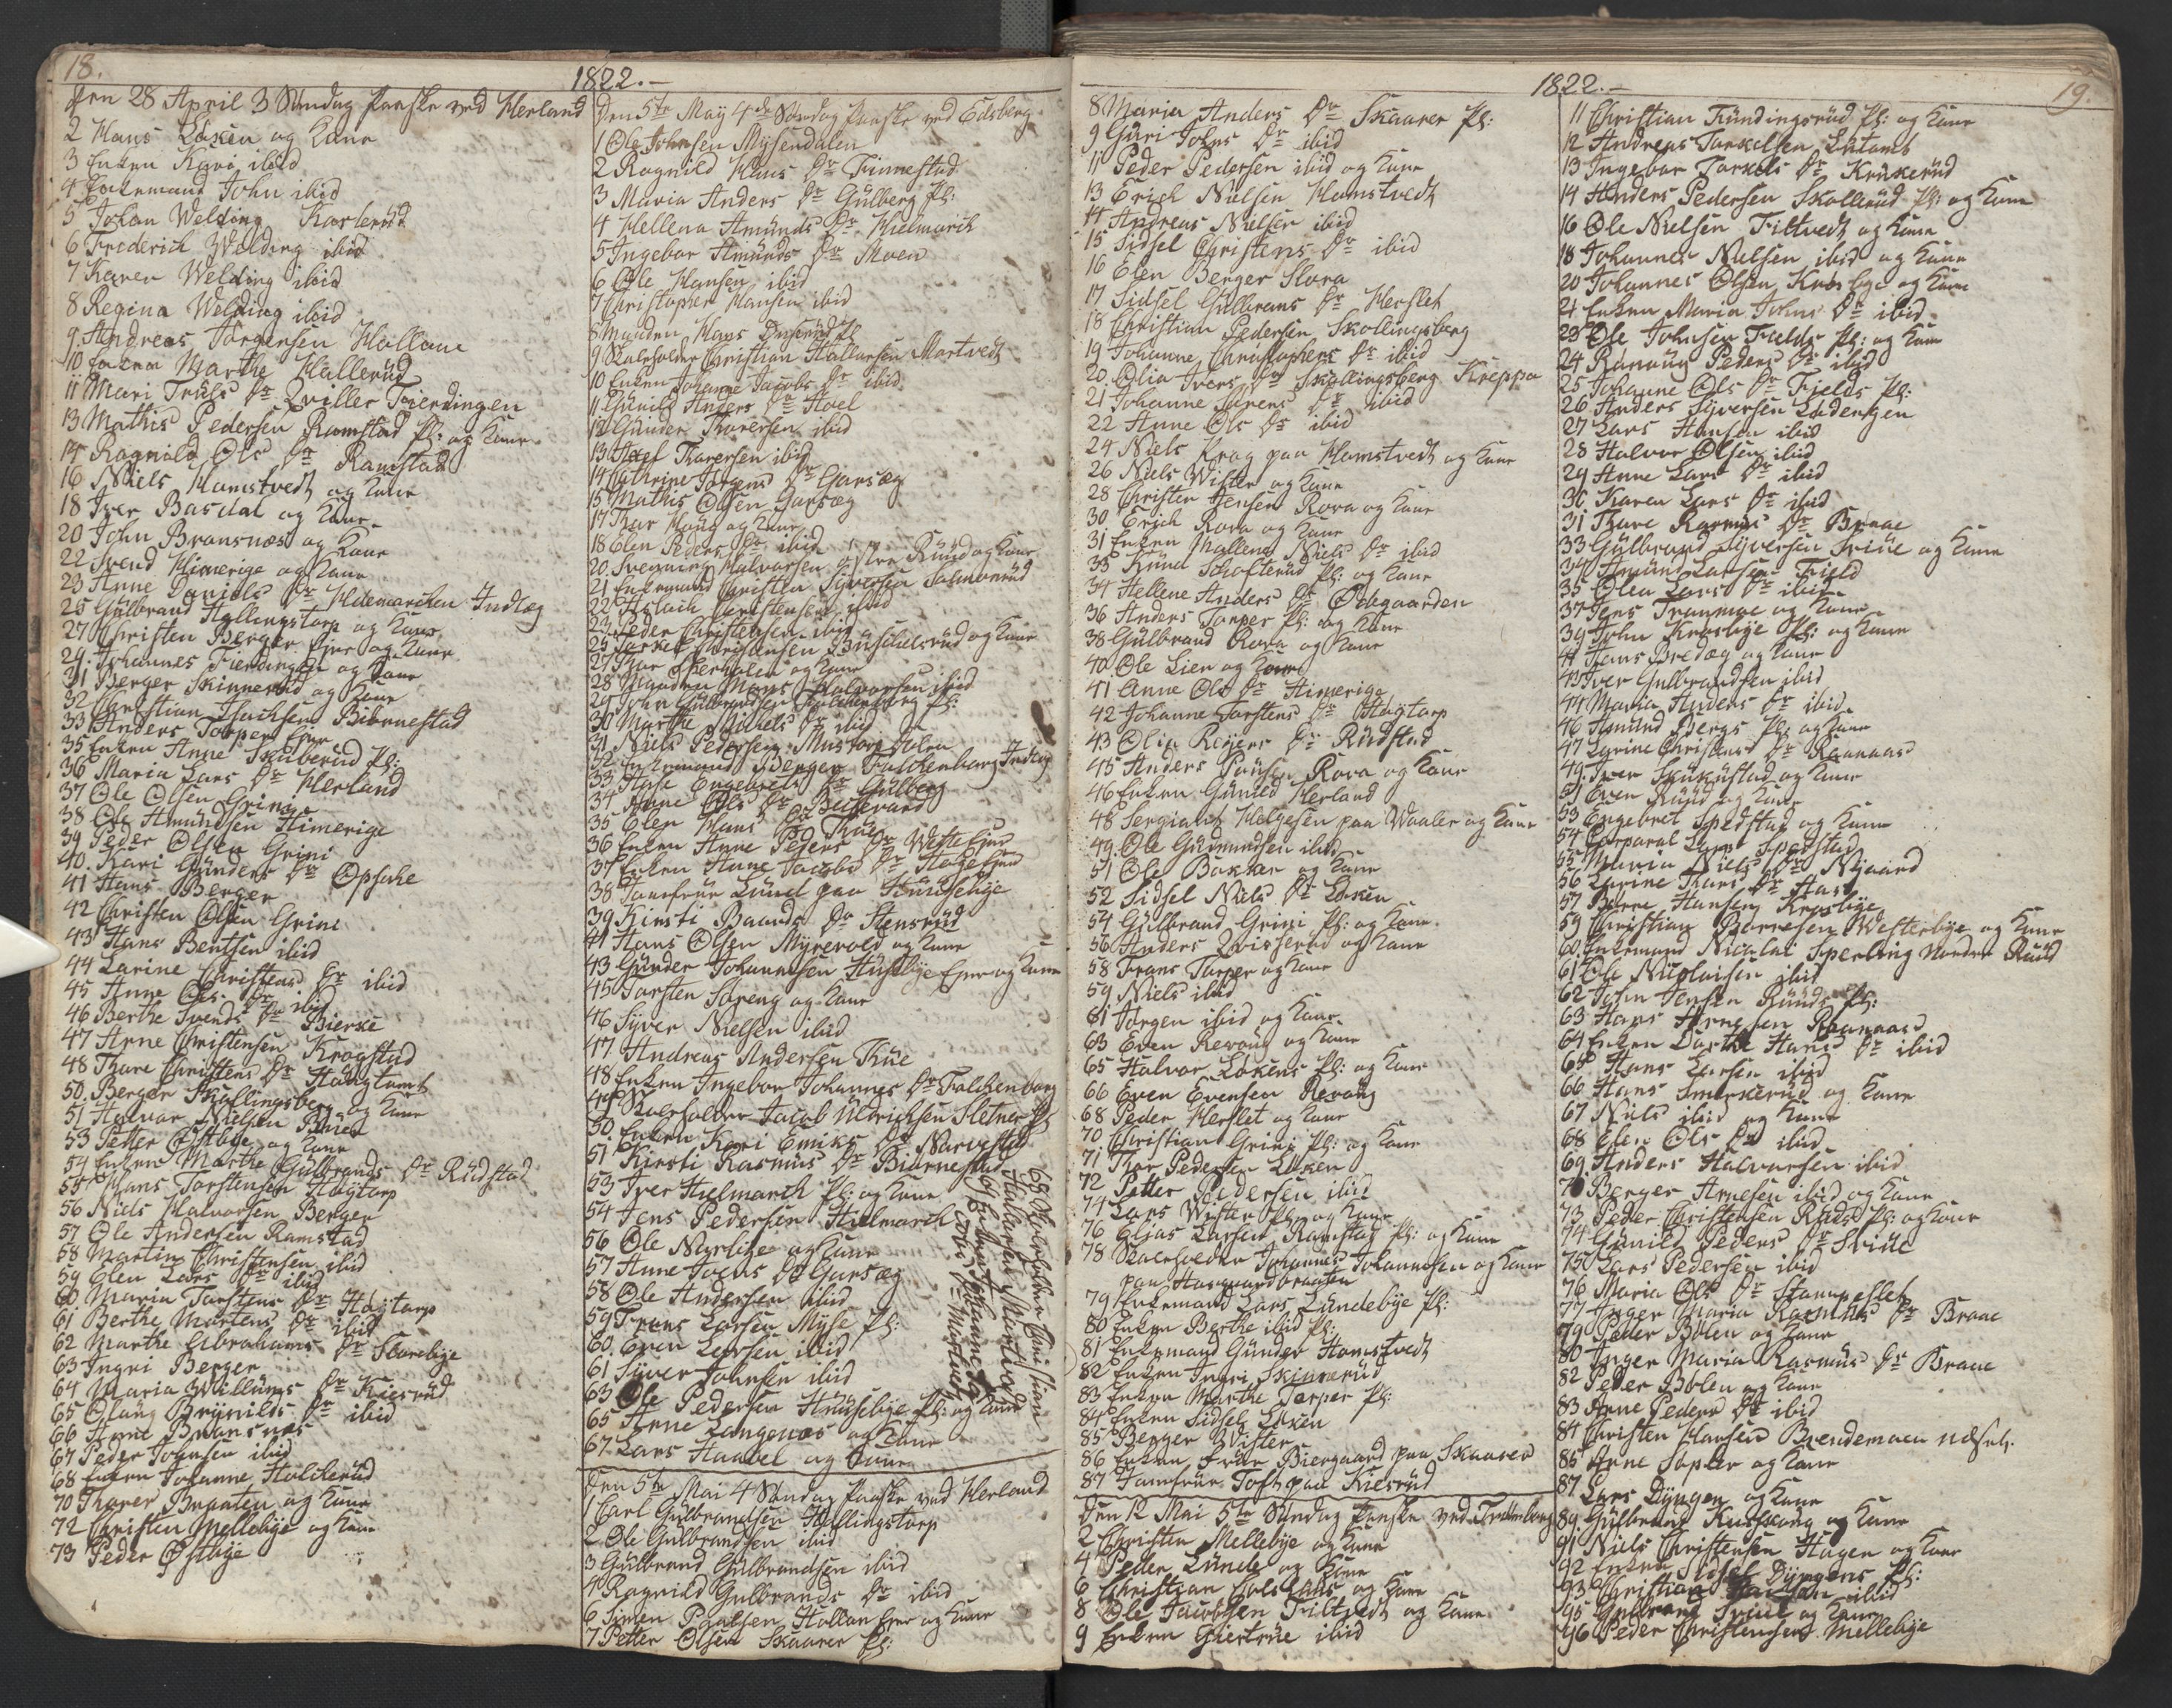 18.
1822.-
Den 28 April 3 Søndag Paaske ved Herland
2 Hans Løken og Kone
3 Enken Kari ibid
4 Enkemand John ibid
5 Johan Welding Karlsrud
6 Frederich Welding ibid
7 Karen Welding ibid
8 Regina Welding ibid
9. Andreas Jørgensen Hallane
10 Enken Marthe Hallerüd
11 Mari Truls Dr Qviller Fierdingen
13 Mathis Pedersen Ramstad Pl: og Kone
14 Ragnild Ols Dr Ramstad
16 Niels Hamstvedt og Kone
18 Iver Basdal og Kone
20 John Bransnæs og Kone
22 Svend Himerige og Kone
23 Anne Daniels Dr Hielmarchen Indlæg
25 Gülbrand Hallingstorp og Kone
27 Christen Berger Ejer og Kone
29. Johannes Fierdingen og Kone
31 Berger Skinnerud og Kone
32 Christian Isachsen Biørnestad
33 Anders Torper Ejer
35 Enken Anne Skuberüd Pl:
36 Maria Lars Dr Herland
37 Ole Olsen Grini
38 Ole Amundsen Himerige
39 Peder Olsen Grini
40. Kari Günders Dr Opsahe
41 Hans Berger
42 Christen Olsen Grini
43 Hans Bentsen ibid
44 Larine Christens Dr ibid
45 Anne Ols. Dr ibid
46 Berthe Svends Dr Bierke
47 Arne Christensen Krogstad
48 Thore Christens Dr Haagtomt
50. Berger Skallingsberg og Kone
51 Halvor Nielsen
53 Petter Østbye og Kone
54 Enken Marthe Gülbrands Dr Rüdstad
55 Hans Torstensen Høytorp
56 Niels Halvorsen Berger
57 Ole Andersen Ramstad
58 Martin Christensen ibid
59 Elen Lars Dr ibid
60 Maria Torstens Dr Høytorp
61 Berthe Mortens Dr ibid
62 Marthe Abrahams Dr Slorebye
63 Ingri Berger
64 Maria Willums Dr Kiesrüd
65 Olaug Brÿnilds Dr ibid
66 Anne Bransnæs
67 Peder Johnsen ibid
68 Enken Johanne Holckerüd
70 Thorer Braaten og Kone
72 Christen Mellebÿe og Kone
73 Peder Østbÿe
Den 5te May 4de Søndag Paaske ved Edsberg.
1 Ole Johnsen Mÿsendalen
2 Ragnild Hans Dr Finnestad
3 Maria Anders Dr Gülberg Pl:
4 Hellena Amünds Dr Hielmarch
5 Ingebor Amünds Dr Moen
6 Ole Hansen ibid
7 Christopher Hansen ibid
8 Manden Hans
9 Skoeholder Christian Hallvorsen Mortvedt
10 Enken Johanne Jacobs Dr ibid
11 Günild Anders Dr Hoel
12 Günder Thoresen ibid
13 Axel Thoresen ibid
14 Cathrine Jørgens Dr Garsæg
15 Mathis Olsen Garsæg
17 Thor Houg og Kone
18 Elen Peders Dr ibid
20. Svenning Halvorsen østre Rüüd og Kone
21 Enkemand Christen Sÿversen Salmonrüd
22 Aslach Christensen ibid
23 Peder Christensen ibid
25 Torkel Christensen Büschelsrüd og Kone
27 Thor og Kone
28 Manden Morts Halvorsen ibid
29 John Gülbrandsen Falckenberg Pl:
30 Marthe Michels Dr ibid
31 Niels Pedersen Mustorp
32 Enkemand Berger Falckenberg Indlæg
33 Engebrets Dr Gülberg
34 Anne Ols Dr
35 Elen Hans Dr Thüe
36 Enken Anne Peders Dr
37 Enken Anne Jacobs Dr
38 Jomfrue Lünd paa Hünsebÿe
39 Kirsti Baards Dr Stensrüd
41 Hans Olsen Mÿrevold og Kone
43 Günder Johannesen Hüsebÿe Ejer og Kone
45 Torsten Særeng og Kone
46 Sÿver Nielsen ibid
47 Andreas Andersen Thüe
48 Enken Ingebor Johannes Dr Falchenberg
49 Skoeholder Jacob Ulrichsen Sletner Pl
50 Enken Kari Emiks Dr Narvestad
51 Kirsti Rasmus Dr Biørnestad
53 Iver Hielmarch Pl: og Kone
54 Jens Pedersen Hielmarch
56 Ole Narlibÿe og Kone
57 Anne Joens Dr Garsæg
58 Ole Andersen ibid
59 Frans Larsen Mÿse Pl:
60. Even Larsen ibid
61 Sÿver Johnsen ibid
63 Ole Pedersen Hünsebÿe Pl: og Kone
65 Arne Langenæs og Kone
67. Lars Haavel og Kone
68 Skoeholder Christian Halvorsen Mortvedt
69 Enken Johanne Jacobs Dr Mortvedt
Den 5te Mai 4 Søndag Paaske ved Herland
1 Carl Gulbrandsen Hallingstorp
2 Ole Gulbrandsen ibid
3 Gülbrand Gulbrandsen ibid
4 Ragnild Gulbrands Dr ibid
6 Simen Poulsen Hallan Ejer og Kone
7 Petter Olsen Skaarer Pl:
1822.-
19.
8 Maria Anders Dr Skaarer Pl:
9 Güri Johns Dr ibid
11 Peder Pedersen ibid og Kone
13 Erich Nielsen Hamstvedt
14 Andreas Nielsen ibid
15 Sidsel Christens Dr ibid
16 Elen Berger Slora
17 Sidsel Gülbrans Dr Herslet
18 Christian Pedersen Skollingsberg
19 Johanne Christophers Dr ibid
20. Olia Ivers Dr Skollingsberg Kreppa
21 Johanne Sørens Dr ibid
22 Anne Ols Dr ibid
24 Niels Krog paa Hamstvedt og Kone
26 Niels Wister og Kone
28 Christen Jensen Rova og Kone
30 Erich Rova og Kone
31 Enken Mallena Niels Dr ibid
33 Knud Schofterüd Pl: og Kone
34 Hellene Anders Dr Ødegaarden
36 Anders Torper Pl: og Kone
38 Gülbrand Rova og Kone
40 Ole Lien og Kone
41 Anne Ols Dr Himerige
42 Johanne Torstens Dr Høÿtorp
43 Olia Reÿers Dr Rüdstad
45 Anders Paüsen Rova og Kone
46 Enken Günild Herland
48 Sergiant Helgesen paa Waaler og Kone
49. Ole Güdmundsen ibid
51 Ole Bakker og Kone
52 Sidsel Niels Dr Løken
54 Gülbrand Grini Pl: og Kone
56 Anders Qvisserud og Kone
58 Frans Torper og Kone
59 Niels ibid
61 Jørgen ibid og Kone
63 Even Revoug og Kone
65 Halvor Løkens Pl: og Kone
66 Even Evensen Revoug
68 Peder Herslet og Kone
70 Christian Grini Pl: og Kone
71 Thor Pedersen Løken
72 Petter Pedersen ibid
74 Lars Wister Pl: og Kone
76 Eljas Larsen Ramstad Pl: og Kone
78 Skoeholder Johannes Johannesen og Kone
paa Haugaardbraaten
79 Enkemand Lars Lundebÿe Pl:
80 Enken Berthe ibid Pl:
81 Enkemand Günder Hamstvedt
82 Enken Ingri Skinnerüd
83 Enken Marthe Torper Pl:
84 Enken Sidsel Løken
85 Berger Wister
86 Enken Früe Biergaard paa Skaarer
87 Jomfrüe Toft paa Kiesrüd
Den 12 Mai 5te Søndag Paaske ved Trømborg
2 Christen Mellebÿe og Kone
4 Peder Lünde og Kone
6 Christian og Kone
8 Ole Jacobsen Filtvedt og Kone
9 Enken Giertrüe ibid
11 Christian Fündingsrüd Pl: og Kone
12 Andreas Torkelsen
13 Ingebor Torkels Dr Krükerüd
14 Anders Pedersen Skollerüd Pl: og Kone
16 Ole Nielsen Filtvedt og Kone
18 Johannes Nielsen ibid og Kone
20 Johannes Olsen Krosbye og Kone
21 Enken Maria Johns Dr ibid
23 Ole Johnsen Fields Pl: og Kone
24 Ranoüg Peders Dr ibid
25 Johanne Ols Dr Fjelds Pl:
26 Anders Sÿversen Ladengen
27 Lars Hansen ibid
28 Halvor Olsen ibid
29 Anne Lars Dr ibid
30 Karen Lars Dr ibid
31 Thore Rasmüs Dr Braae
33 Gülbrand Sÿversen Sviüe og Kone
34 Amünd Larsen Field
35 Olea Lars Dr ibid
37 Jens Tranmoe og Kone
39 John Krosbÿe Pl: og Kone
41 Hans Bredæg og Kone
43 Iver Gulbrandsen ibid
44 Maria Anders Dr ibid
46 Amünd Bergs Pl: og Kone
47 Larine Christens Dr Raanaas
49. Iver Skükustad og Kone
51 Even Rüüd og Kone
53 Engebret Spedstad og Kone
54 Corporal Lars Spedstad
55 Maria Niels Dr Nÿgaard
56 Larine Thors Dr Haas
57 Børre Hansen Krosbÿe
59 Christian Børresen Westerbÿe og Kone
60. Enkemand Nicolai Sperling Nordre Rüüd
61 Ole Nicolaisen ibid
62 John Jensen Rüüds Pl:
63 Hans Arnesen Raanaas
64 Enken Dorthe Hans Dr ibid
65 Hans Larsen ibid
66 Hans Smørkerüd og Kone
67 Niels ibid og Kone
68 Elen Ols Dr ibid
69. Anders Halvorsen ibid
71 Berger Arnesen ibid og Kone
73 Peder Christensen Rüds Pl: og Kone
74 Günild Peders Dr Sviüe
75 Lars Pedersen ibid
76 Maria Ols Dr Stampeslet
77 Inger Maria Rasmüs Dr Braae
79 Peder Bølen og Kone
80 Inger Maria Rasmüs Dr Braae
82 Peder Bølen og Kone
83 Anne Peders Dr ibid
84 Christen Hansen Brendemoen
85 Arne Sopler og Kone
87 Lars Dÿngen og Kone
89 Gülbrand Kusskoug og Kone
91 Niels Christensen Hagen og Kone
92 Enken Sidsel Dÿngens Pl:
93 Christian ibid
95 Gülbrand Sviüe og Kone
96 Peder Christensen Mellebÿe